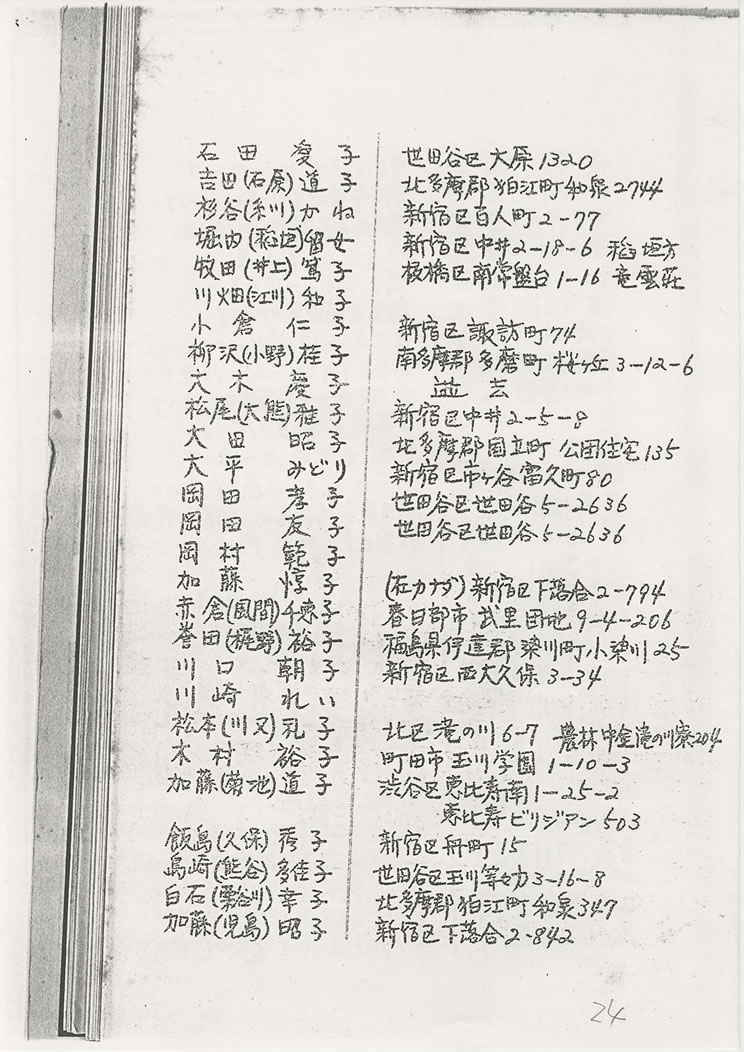 石田愛子 世田谷区大原1320
吉田(石原)道子 北多摩郡狛江町和泉2744
杉谷(糸川)かね 新宿区百人町2-77
堀内(稲垣)留女 新宿区中井2-18-6 稲垣方
牧田(井上)篤子 板橋区南常盤台1-16 竜雲荘
川畑(江川)和子
小倉仁子 新宿区諏訪町74
柳沢(小野)桂子 南多摩郡多磨町桜ヶ丘3-12-6
大木慶子 逝去
松尾(大熊)雅子 新宿区中井2-5-8
大田昭子 北多摩郡国立町公団住宅135
大平みどり 新宿区市ヶ谷富久町80
岡田孝子 世田谷区世田谷5-2636
岡田友子 世田谷区世田谷5-2636
岡村範子
加藤惇子 (在カナダ)新宿区下落合2-794
赤倉(風間)千恵子 春日部市武里団地9-4-206
誉田(梶野)裕子 福島県伊達郡梁川町小梁川25
川口朝子 新宿区西大久保3-34
川崎れい
松本(川又)乳子 北区滝の川6-7 農林中金滝の川寮204
木村裕子 町田市玉川学園1-10-3
加藤(菊池)道子 渋谷区恵比寿南1-25-2
恵比寿ビリジアン503
飯島(久保)秀子 新宿区舟町15
島崎(熊谷)多佳子 世田谷区玉川等々力3-16-8
白石(栗谷川)幸子 北多摩郡狛江町和泉347
加藤(児島)昭子 新宿区下落合2-842
24